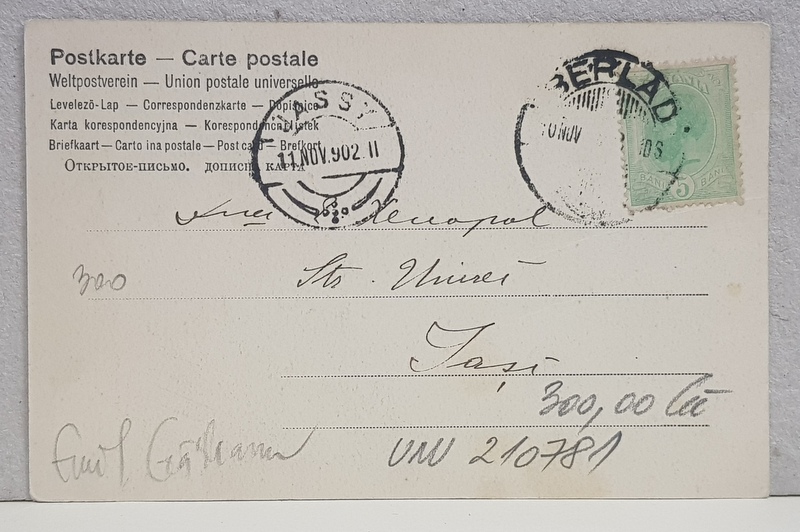 Postkarte — Carte postale
Weltpostverein — Union postale universelle
Levelező-Lap — Correspondenzkarte — Dopisnice
Karta korespondencyjna — Korespondenční lístek
Briefkaart — Carto ina postale — Post card — Brefkort
Открытое-письмо. дописна карта
JASSY
11 NOV. 902. 11
BERLAD
10 NOV
BANI 5 BANI
Xenopol
300
Str. Unirei
Iași
300,00 lei
Emil
VNV 210781